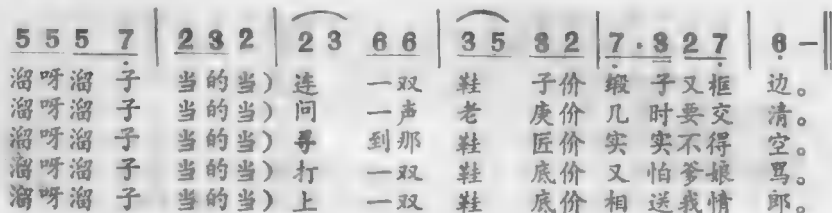 5 5 5 7 | 2 3 2 | 2 3 6 6 | 3 5 3 2 | 7 · 3 2 7 | 6 – ‖
溜呀溜 子 当的当) 连 一双 鞋 子价 缎 子又框 边。
溜呀溜 子 当的当) 问 一声 老 庚价 几 时要交 清。
溜呀溜 子 当的当) 寻 到那 鞋 匠价 实 实不得 空。
溜呀溜 子 当的当) 打 一双 鞋 底价 又 怕爹娘 骂。
溜呀溜 子 当的当) 上 一双 鞋 底价 相 送我情 郎。